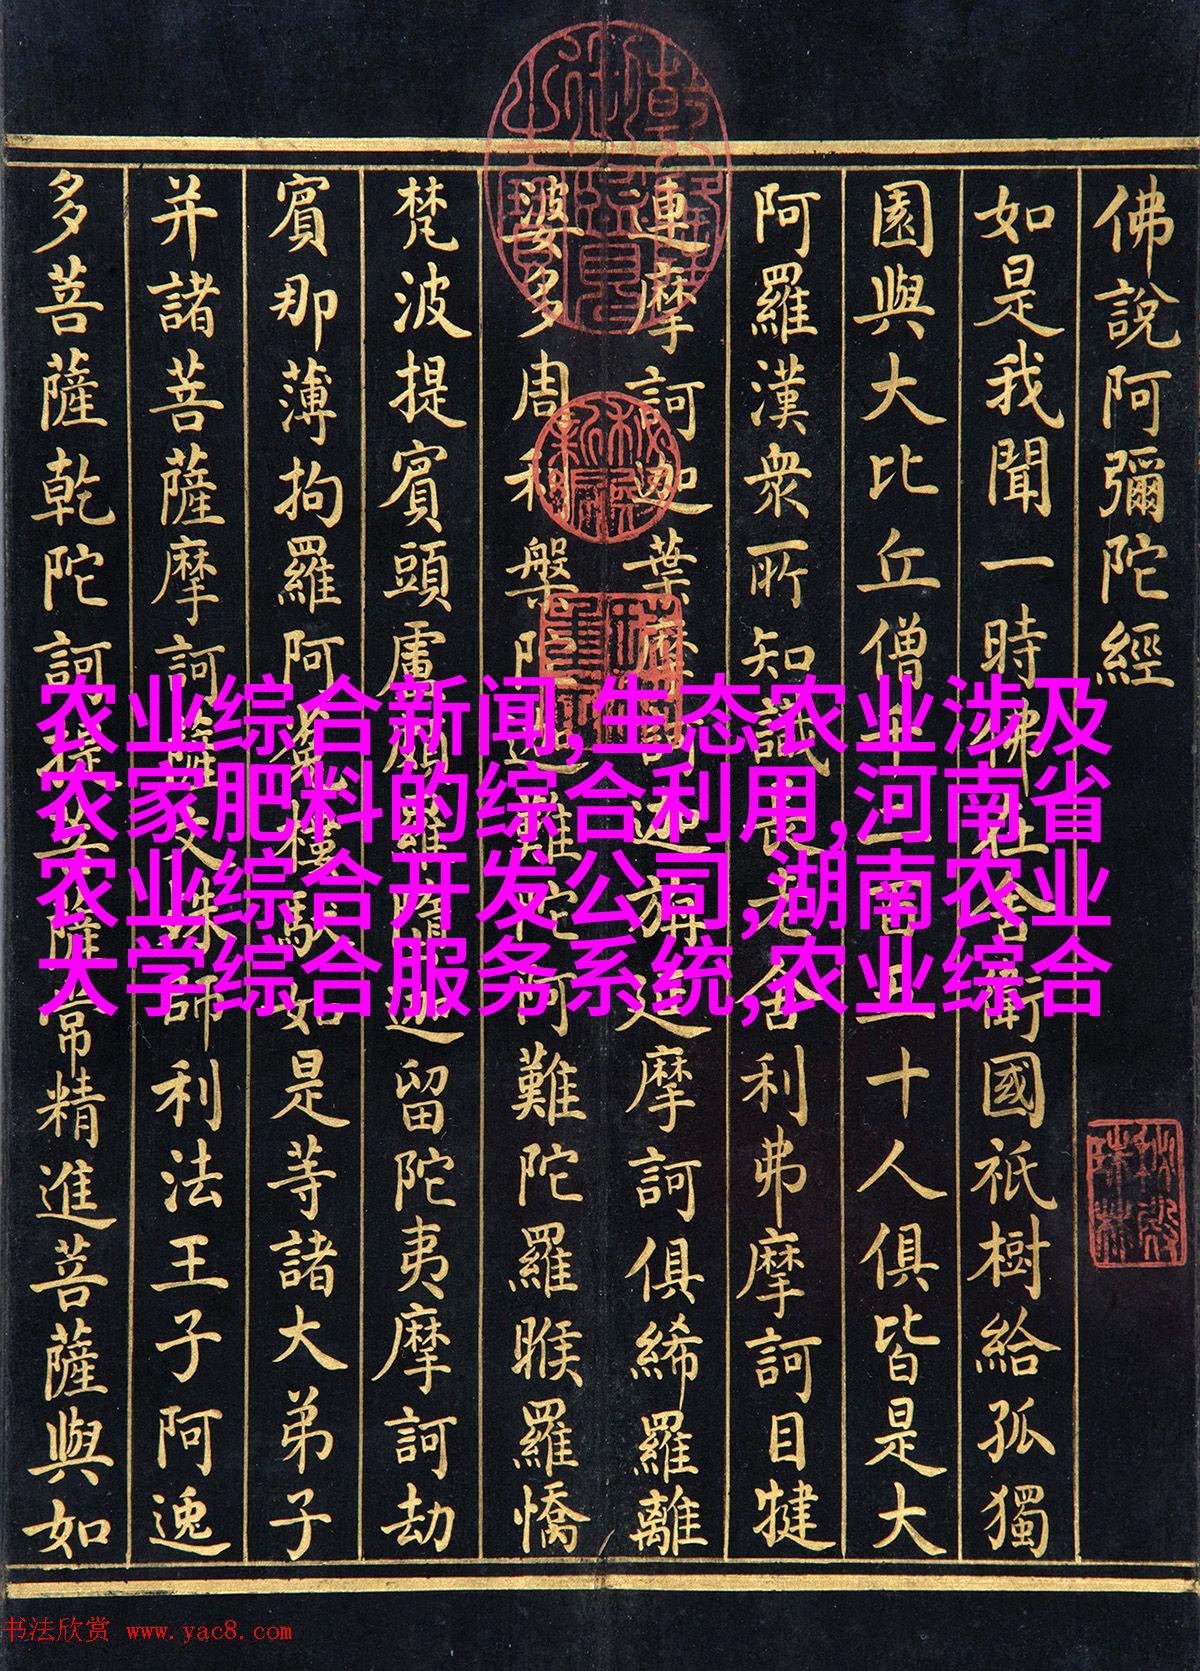 佛說阿彌陀經
如是我聞一時佛在舍衛國祇樹給孤獨
園與大比丘僧千二百五十人俱皆是大
阿羅漢衆所知識長老舍利弗摩訶目犍
連摩訶迦葉摩訶迦旃延摩訶俱絺羅離
婆多周利槃陀迦難陀阿難陀羅睺羅憍
梵波提賓頭盧頗羅墮迦留陀夷摩訶劫
賓那薄拘羅阿㝹樓馱如是等諸大弟子
并諸菩薩摩訶薩文殊師利法王子阿逸
多菩薩乾陀訶提菩薩常精進菩薩與如
农业综合新闻,生态农业涉及
农家肥料的综合利用,河南省
农业综合开发公司,湖南农业
大学综合服务系统,农业综合
书法欣赏 www.yac8.com